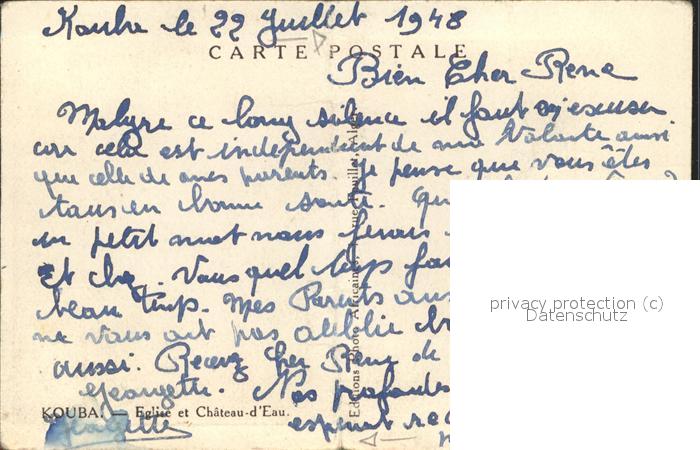 Kouba le 22 Juillet 1948
CARTE POSTALE
Bien Cher Rene
Malgre ce long silence il faut m'excuser
car cela est independant de ma Volonte aussi
que celle de mes parents. Je pense que vous êtes
tous en bonne sante.
un petit mot nous ferais
Et chez. Vous quel temps
beau temp. Mes Parents
ne vous ont pas oublie
aussi. Recevez Cher Rene de
Georgette. Nos
KOUBA. — Eglise et Château-d'Eau.
esperant
Georgette
Editions Photo Africaines, Alger
privacy protection (c)
Datenschutz